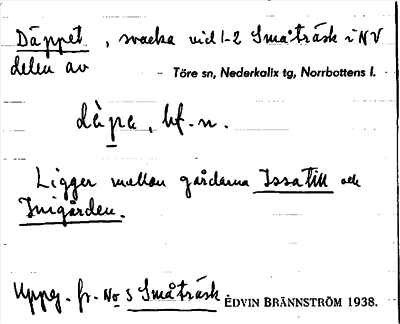 Däppet, svacka vid 1-2 Småträsk i NV
delen av
Töre sn, Nederkalix tg, Norrbottens l.
dàpe, bf. n.
Ligger mellan gårdarna Issatill och
Inigården.
Uppg. fr. No 3 Småträsk.
EDVIN BRÄNNSTRÖM 1938.